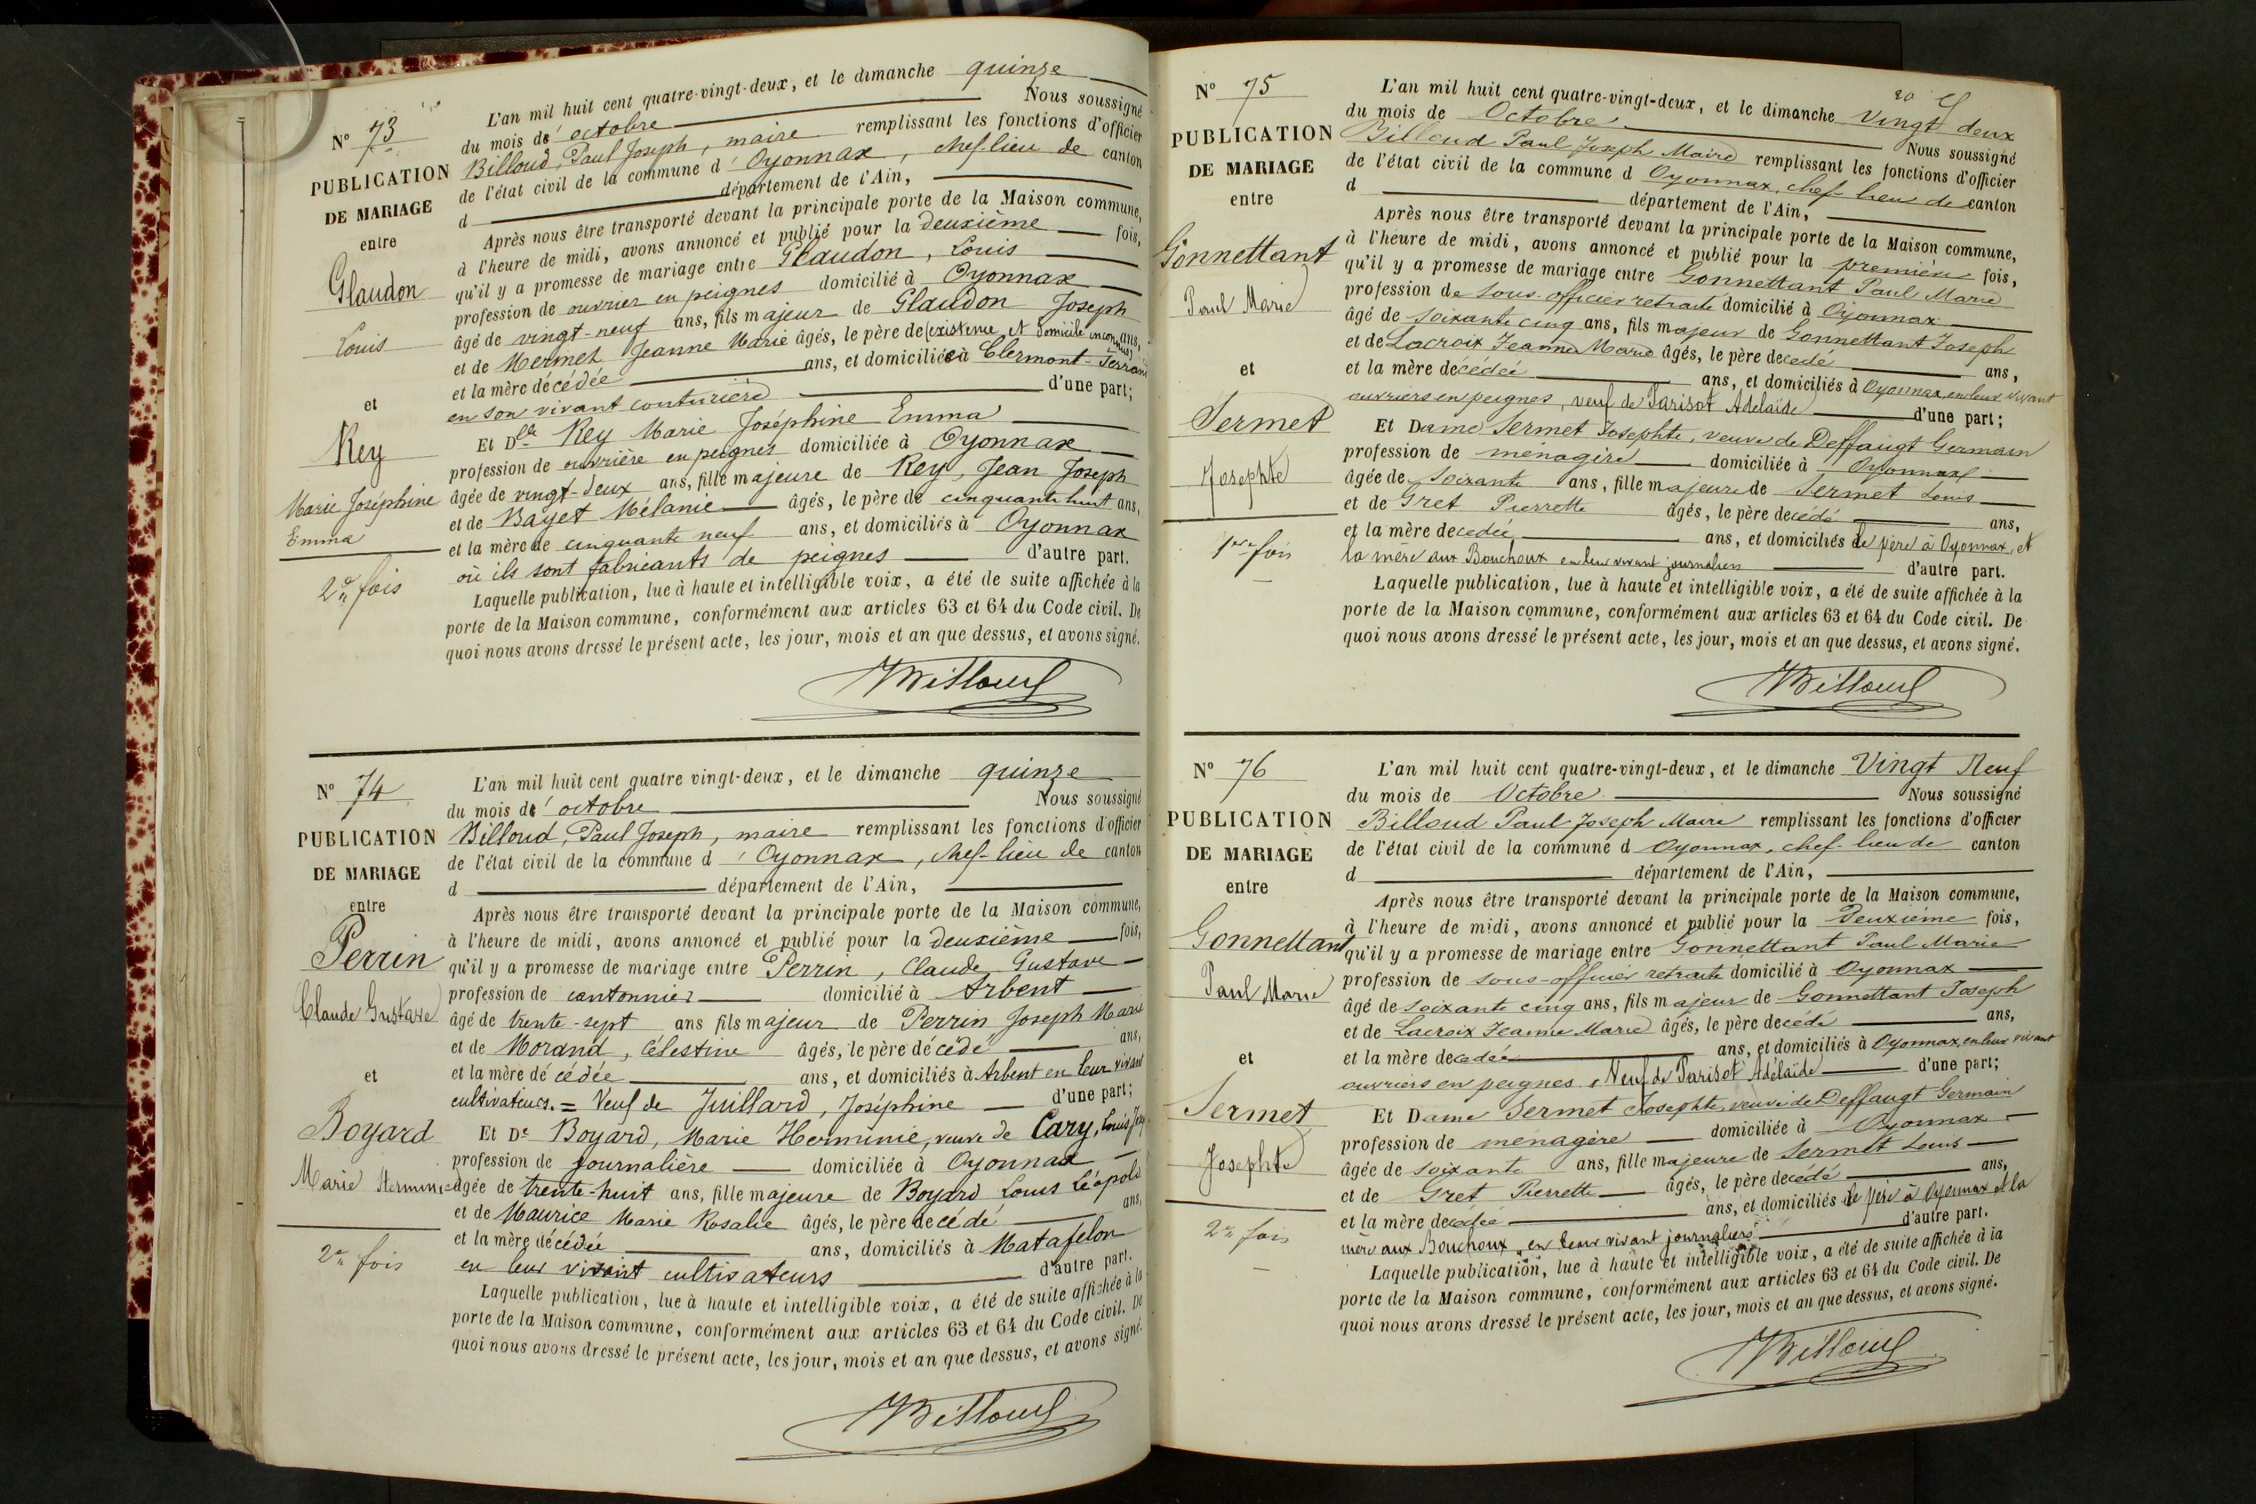 N° 73
PUBLICATION
DE MARIAGE
entre
Glaudon
Louis
et
Rey
Marie Joséphine
Emma
2e fois
L'an mil huit cent quatre-vingt-deux, et le dimanche quinze
du mois de octobre Nous soussigné
Billoud, Paul Joseph, maire remplissant les fonctions d'officier
de l'état civil de la commune d'Oyonnax, chef-lieu de canton
d département de l'Ain,
Après nous être transporté devant la principale porte de la Maison commune,
à l'heure de midi, avons annoncé et publié pour la deuxième fois,
qu'il y a promesse de mariage entre Glaudon, Louis
profession de ouvrier en peignes domicilié à Oyonnax
âgé de vingt-neuf ans, fils majeur de Glaudon Joseph
et de Mermet Jeanne Marie âgés, le père de (existence et domicile inconnus) ans,
et la mère décédée ans, et domiciliée à Clermont-Ferrand
en son vivant couturière d'une part;
Et Dlle Rey Marie Joséphine Emma
profession de ouvrière en peignes domiciliée à Oyonnax
âgée de vingt-deux ans, fille majeure de Rey, Jean Joseph
et de Bayet Mélanie âgés, le père de cinquante huit ans,
et la mère de cinquante neuf ans, et domiciliés à Oyonnax
où ils sont fabricants de peignes d'autre part.
Laquelle publication, lue à haute et intelligible voix, a été de suite affichée à la
porte de la Maison commune, conformément aux articles 63 et 64 du Code civil. De
quoi nous avons dressé le présent acte, les jour, mois et an que dessus, et avons signé.
Billoud
N° 74
PUBLICATION
DE MARIAGE
entre
Perrin
Claude Gustave
et
Boyard
Marie Herminie
2e fois
L'an mil huit cent quatre vingt-deux, et le dimanche quinze
du mois d'octobre Nous soussigné
Billoud, Paul Joseph, maire remplissant les fonctions d'officier
de l'état civil de la commune d'Oyonnax, chef-lieu de canton
d département de l'Ain,
Après nous être transporté devant la principale porte de la Maison commune,
à l'heure de midi, avons annoncé et publié pour la deuxième fois,
qu'il y a promesse de mariage entre Perrin, Claude Gustave
profession de cantonnier domicilié à Arbent
âgé de trente-sept ans fils majeur de Perrin Joseph Marie
et de Morand, Célestine âgés, le père décédé ans,
et la mère décédée ans, et domiciliés à Arbent en leur vivant
cultivateurs. = Veuf de Juillard, Joséphine d'une part;
Et De Boyard, Marie Herminie, veuve de Cary, Louis
profession de journalière domiciliée à Oyonnax
âgée de trente-huit ans, fille majeure de Boyard Louis Léopold
et de Maurice Marie Rosalie âgés, le père décédé ans,
et la mère décédée ans, domiciliés à Matafelon
en leur vivant cultivateurs d'autre part.
Laquelle publication, lue à haute et intelligible voix, a été de suite affichée à la
porte de la Maison commune, conformément aux articles 63 et 64 du Code civil. De
quoi nous avons dressé le présent acte, les jour, mois et an que dessus, et avons signé.
Billoud
N° 75
PUBLICATION
DE MARIAGE
entre
Gonnettant
Paul Marie
et
Sermet
Josephte
1ere fois
L'an mil huit cent quatre-vingt-deux, et le dimanche Vingt deux
du mois de Octobre Nous soussigné
Billoud Paul Joseph Maire remplissant les fonctions d'officier
de l'état civil de la commune d Oyonnax, chef-lieu de canton
d département de l'Ain,
Après nous être transporté devant la principale porte de la Maison commune,
à l'heure de midi, avons annoncé et publié pour la première fois,
qu'il y a promesse de mariage entre Gonnettant Paul Marie
profession de sous-officier retraité domicilié à Oyonnax
âgé de soixante cinq ans, fils majeur de Gonnettant Joseph
et de Lacroix Jeanne Marie âgés, le père decedé ans,
et la mère décédée ans, et domiciliés à Oyonnax, en leur vivant
ouvriers en peignes, veuf de Parisot Adelaïde d'une part;
Et Dame Sermet Josephte, veuve de Deffaugt Germain
profession de ménagère domiciliée à Oyonnax
âgée de soixante ans, fille majeure de Sermet Louis
et de Gret Pierrette âgés, le père decédé ans,
et la mère decedée ans, et domiciliés le père à Oyonnax, et
la mère aux Bouchoux en leur vivant journaliers d'autre part.
Laquelle publication, lue à haute et intelligible voix, a été de suite affichée à la
porte de la Maison commune, conformément aux articles 63 et 64 du Code civil. De
quoi nous avons dressé le présent acte, les jour, mois et an que dessus, et avons signé.
Billoud
N° 76
PUBLICATION
DE MARIAGE
entre
Gonnettant
Paul Marie
et
Sermet
Josephte
2e fois
L'an mil huit cent quatre-vingt-deux, et le dimanche Vingt Neuf
du mois de Octobre Nous soussigné
Billoud Paul Joseph Maire remplissant les fonctions d'officier
de l'état civil de la commune d Oyonnax, chef-lieu de canton
d département de l'Ain,
Après nous être transporté devant la principale porte de la Maison commune,
à l'heure de midi, avons annoncé et publié pour la Deuxième fois,
qu'il y a promesse de mariage entre Gonnettant Paul Marie
profession de sous-officier retraité domicilié à Oyonnax
âgé de soixante cinq ans, fils majeur de Gonnettant Joseph
et de Lacroix Jeanne Marie âgés, le père decédé ans,
et la mère decedée ans, et domiciliés à Oyonnax, en leur vivant
ouvriers en peignes, Veuf de Parisot Adélaïde d'une part;
Et Dame Sermet Josephte, veuve de Deffaugt Germain
profession de ménagère domiciliée à Oyonnax
âgée de soixante ans, fille majeure de Sermet Louis
et de Gret Pierrette âgés, le père decédé ans,
et la mère decedée ans, et domiciliés le père à Oyonnax et la
mère aux Bouchoux, en leur vivant journaliers d'autre part.
Laquelle publication, lue à haute et intelligible voix, a été de suite affichée à la
porte de la Maison commune, conformément aux articles 63 et 64 du Code civil. De
quoi nous avons dressé le présent acte, les jour, mois et an que dessus, et avons signé.
Billoud